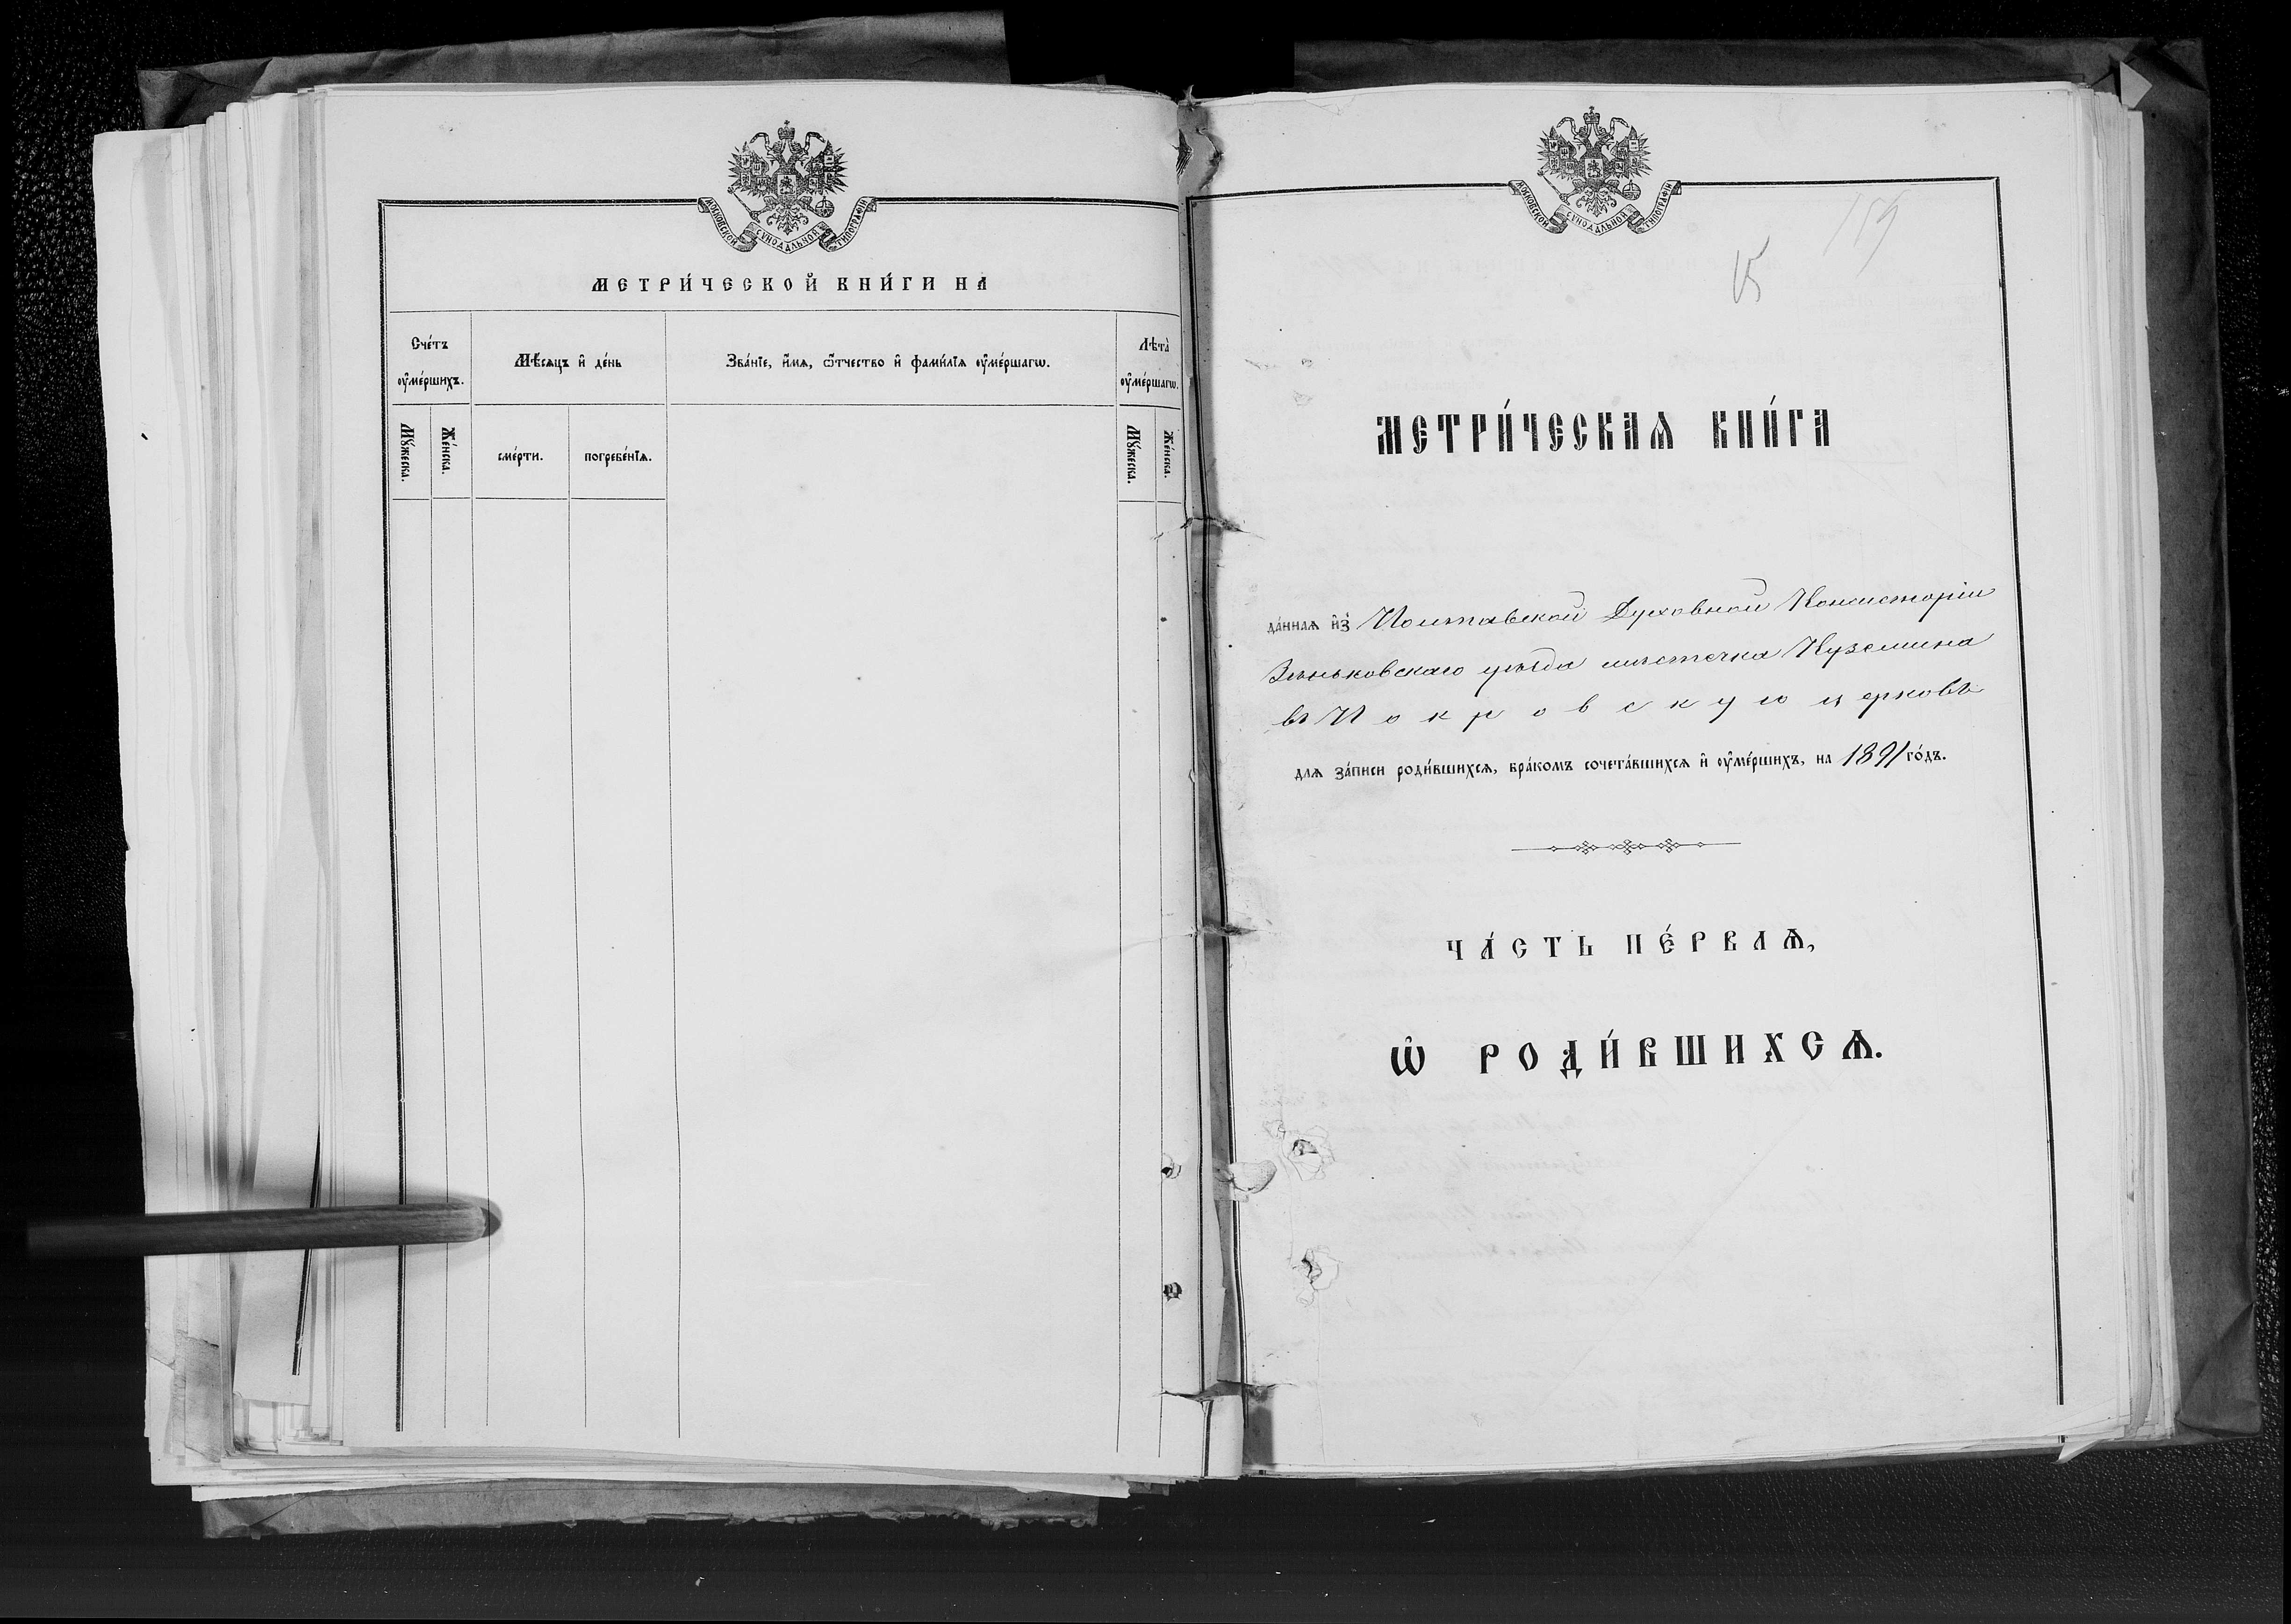 МОСКОВСКОЙ СУНОДАЛЬНОЙ ТИПОГРАФІИ
МЕТРИ́ЧЕСКОЙ КНИ́ГИ НА
Сче́тъ ᲂу҆ме́ршихъ.
Мѣ́сяцъ и҆ де́нь
Зва́нїе, и҆́мѧ, ѻ҆́тчество и҆ фами́лїѧ ᲂу҆ме́ршагѡ.
Лѣта̀ ᲂу҆ме́ршагѡ.
Мꙋ́жеска.
Же́нска.
сме́рти.
погребе́нїѧ.
Мꙋ́жеска.
Же́нска.
МОСКОВСКОЙ СУНОДАЛЬНОЙ ТИПОГРАФІИ
15
159
МЕТРИ́ЧЕСКАѦ КНИ́ГА
да́ннаѧ и҆з̾ Полтавской Духовной Консисторіи
Зѣньковскаго уѣзда мѣстечка Куземина
въ Покровскую церковь
длѧ за́писи роди́вшихсѧ, бра́комъ сочета́вшихсѧ и҆ ᲂу҆ме́ршихъ, на 1891 го́дъ.
ЧА́СТЬ ПЕ́РВАѦ,
Ѡ҆ РОДИ́ВШИХСѦ.